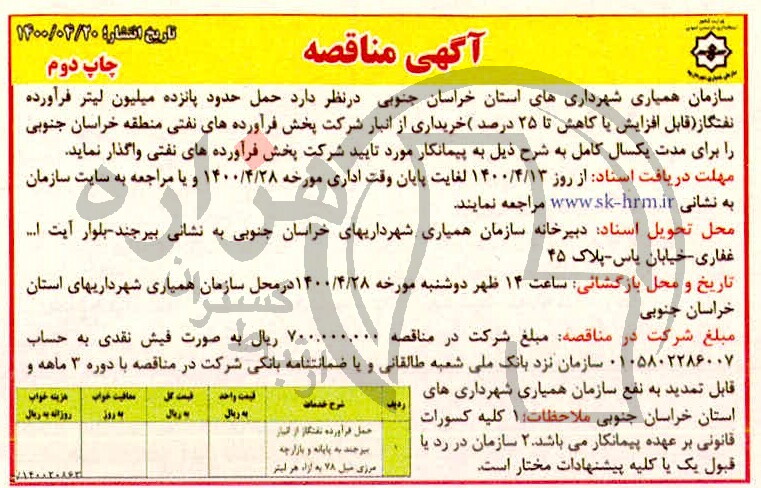 تاریخ انتشار: ۱۴۰۰/۰۴/۲۰
آگهی مناقصه
چاپ دوم
سازمان همیاری شهرداری های استان خراسان جنوبی درنظر دارد حمل حدود پانزده میلیون لیتر فرآورده
نفتگاز(قابل افزایش یا کاهش تا ۲۵ درصد )خریداری از انبار شرکت پخش فرآورده های نفتی منطقه خراسان جنوبی
را برای مدت یکسال کامل به شرح ذیل به پیمانکار مورد تایید شرکت پخش فرآورده های نفتی واگذار نماید.
مهلت دریافت اسناد: از روز ۱۴۰۰/۴/۱۳ لغایت پایان وقت اداری مورخه ۱۴۰۰/۴/۲۸ و یا مراجعه به سایت سازمان
به نشانی www.sk-hrm.ir مراجعه نمایند.
محل تحویل اسناد: دبیرخانه سازمان همیاری شهرداریهای خراسان جنوبی به نشانی بیرجند-بلوار آیت ا...
غفاری-خیابان یاس-پلاک ۴۵
تاریخ و محل بازگشائی: ساعت ۱۴ ظهر دوشنبه مورخه ۱۴۰۰/۴/۲۸درمحل سازمان همیاری شهرداریهای استان
خراسان جنوبی
مبلغ شرکت در مناقصه: مبلغ شرکت در مناقصه ۷۰۰.۰۰۰.۰۰۰ ریال به صورت فیش نقدی به حساب
۰۱۰۵۸۰۲۲۸۶۰۰۷ سازمان نزد بانک ملی شعبه طالقانی و یا ضمانتنامه بانکی شرکت در مناقصه با دوره ۳ ماهه و
قابل تمدید به نفع سازمان همیاری شهرداری های
استان خراسان جنوبی ملاحظات:۱ کلیه کسورات
قانونی بر عهده پیمانکار می باشد.۲ سازمان در رد یا
قبول یک یا کلیه پیشنهادات مختار است.
ردیف شرح خدمات قیمت واحد به ریال قیمت کل به ریال معافیت خواب به روز هزینه خواب روزانه به ریال
۱ حمل فرآورده نفتگاز از انبار
بیرجند به پایانه و بازارچه
مرزی میل ۷۸ به ازاء هر لیتر
۱۴۰۰۲۰۸۶۳/
هزاره